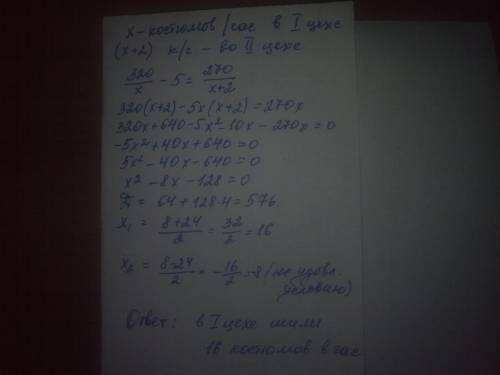 x - костюмов/час в I цехе
(x+2) к/г - во II цехе
320/x - 5 = 270/(x+2)
320(x+2) - 5x(x+2) = 270x
320x + 640 - 5x² - 10x - 270x = 0
-5x² + 40x + 640 = 0
5x² - 40x - 640 = 0
x² - 8x - 128 = 0
D = 64 + 128·4 = 576
x₁ = (8+24)/2 = 32/2 = 16
x₂ = (8-24)/2 = -16/2 = -8 (не удовл.
условию)
Ответ: в I цехе шили
16 костюмов в час